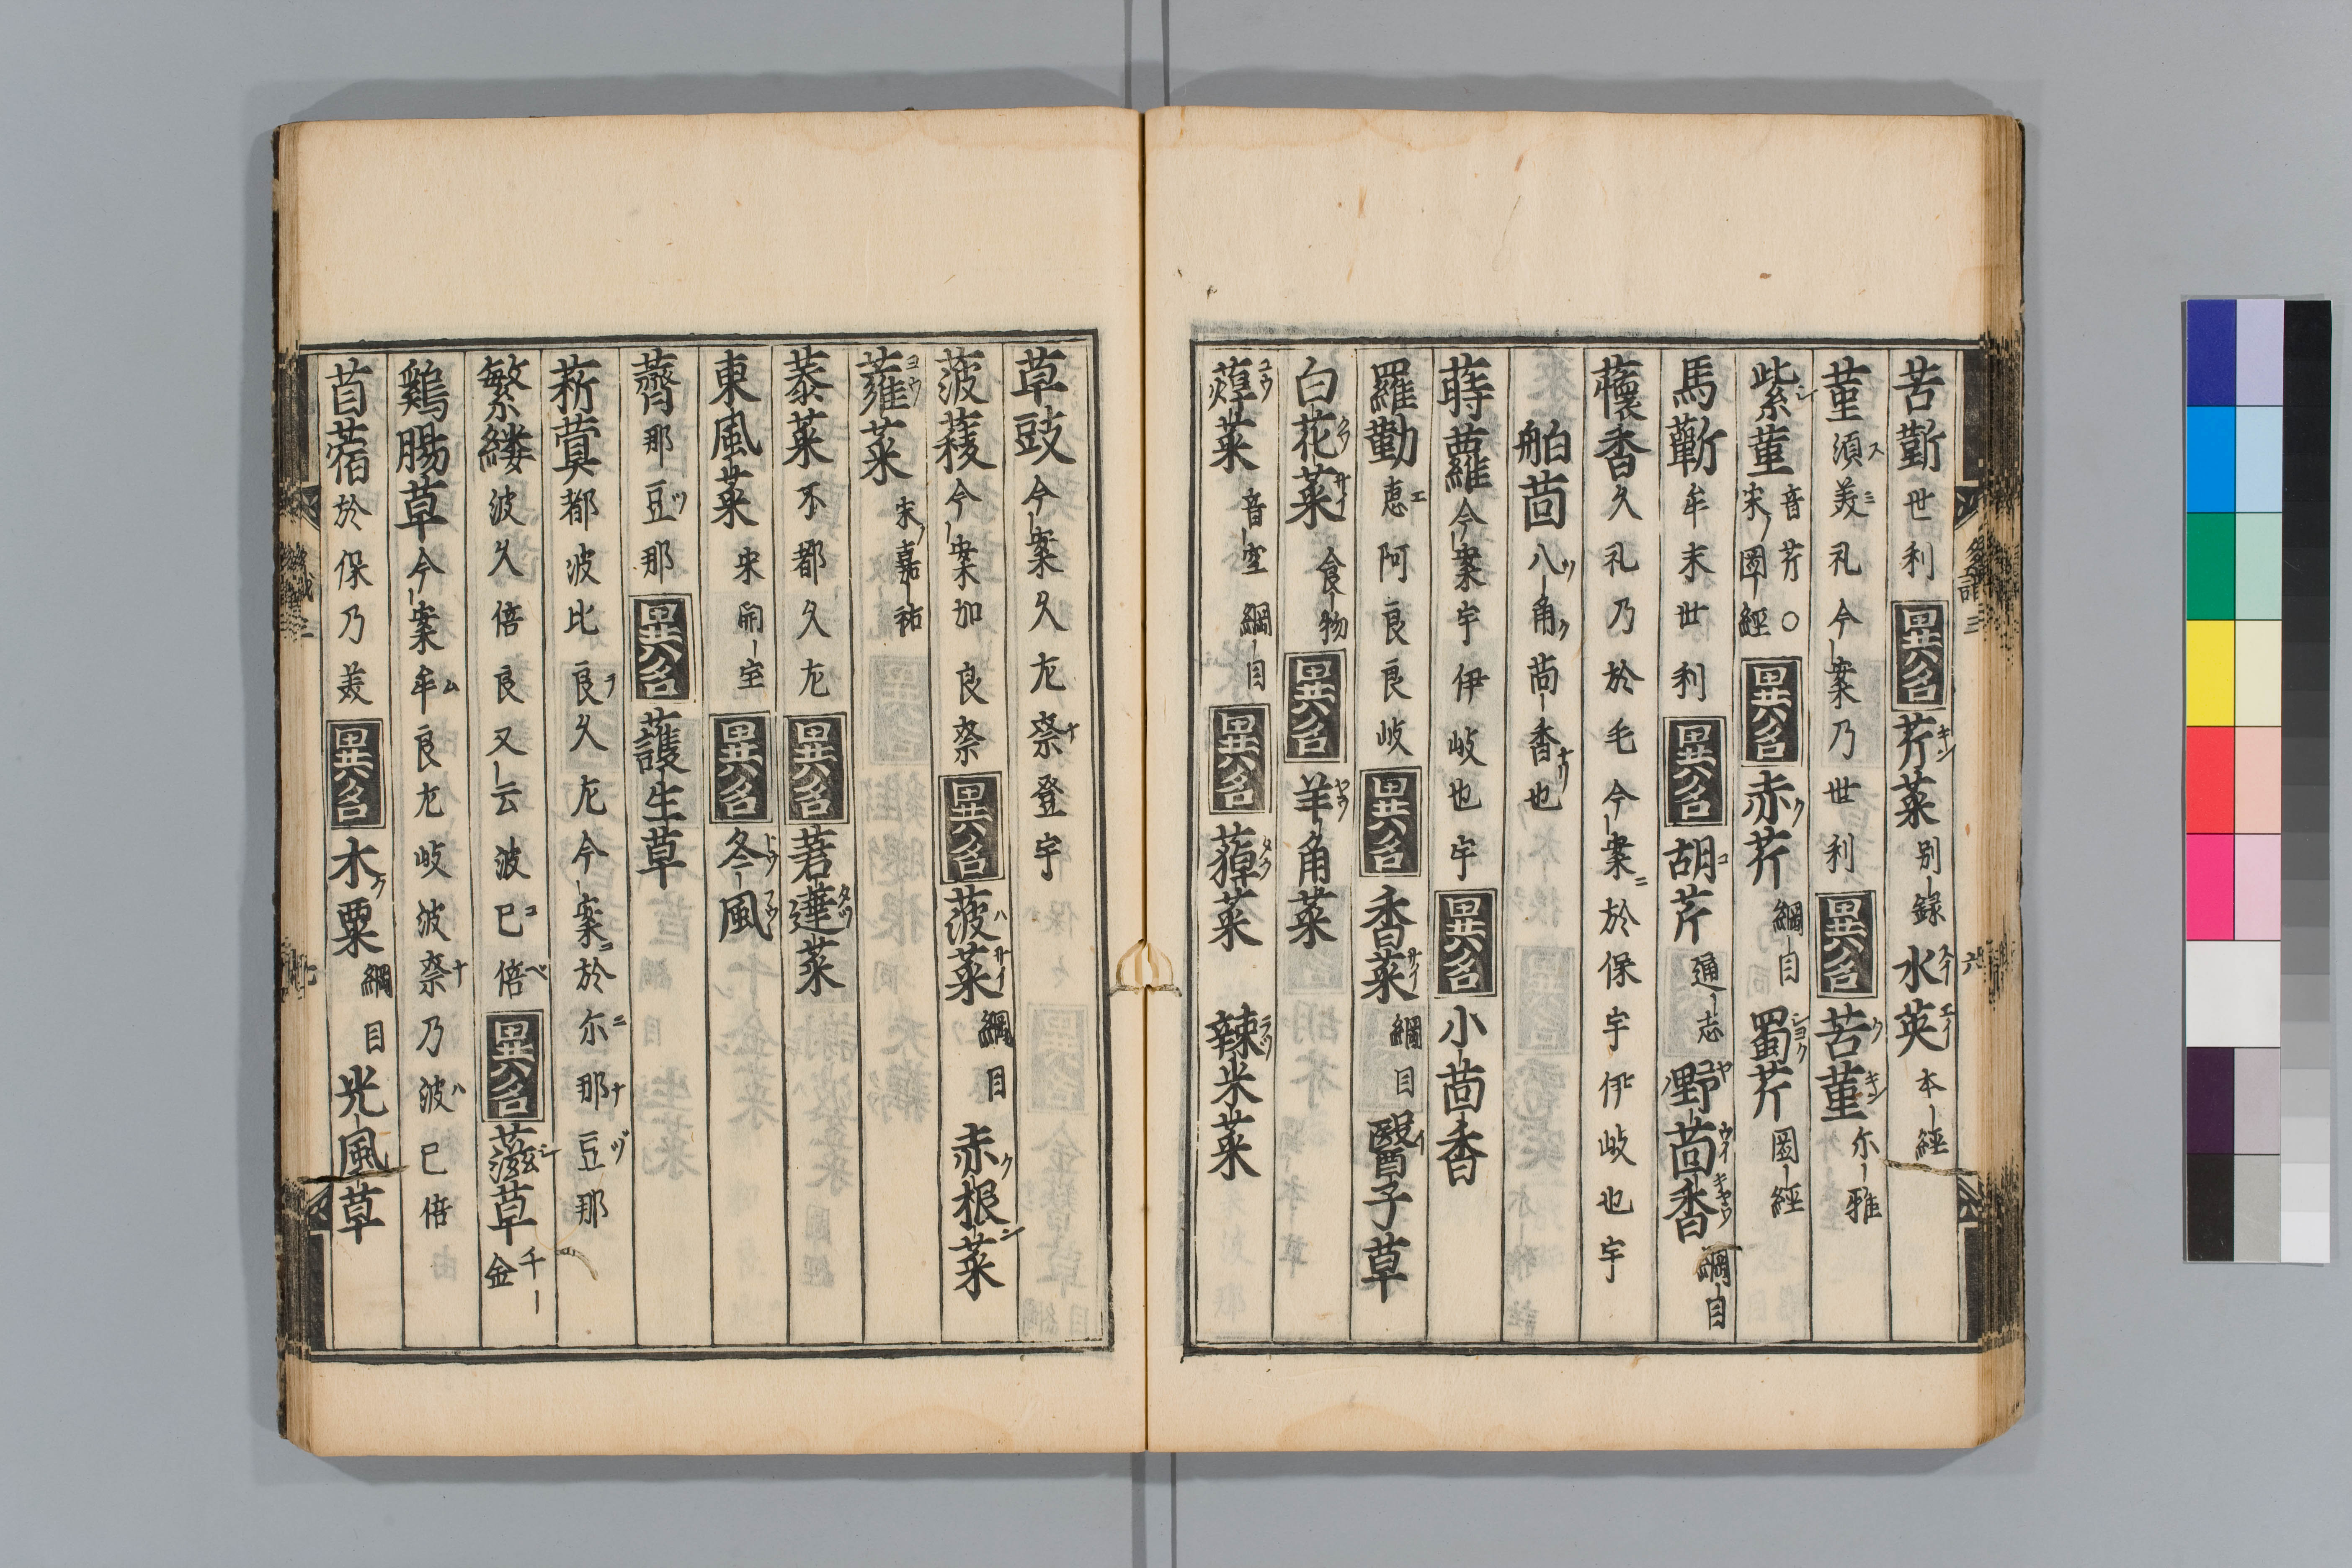 苦蘄世利 異名 芹菜別録 水英本經
菫須美礼今案乃世利 異名 苦菫尓雅
紫菫音芹〇宋圖經 異名 赤芹綱目 蜀芹圖經
馬蘄牟末世利 異名 胡芹通志 野茴香綱目
蘹香久礼乃於毛今案於保宇伊岐也宇
舶茴八角茴香也
蒔蘿今案宇伊岐也宇 異名 小茴香
羅勒惠阿良良岐 異名 香菜綱目 翳子草
白花菜食物 異名 羊角菜
蔊菜音空綱目 異名 蔊菜 辣米菜
草豉今案久尢奈登宇
菠薐今案加良奈 異名 菠菜綱目 赤根菜
蕹菜宋嘉祐
菾菜不都久尢 異名 莙薘菜
東風菜宋開宝 異名 冬風
薺那豆那 異名 護生草
菥蓂都波比良久尢今案於尓那豆那
繁縷波久倍良又云波己倍 異名 蕿草千金
鷄腸草今案牟良尢岐波奈乃波己倍
苜蓿於保乃美 異名 木粟綱目 光風草